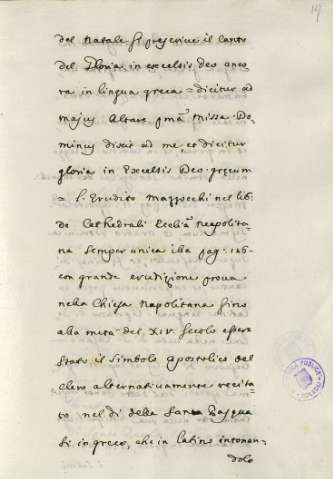 19
del Natale si prescrive il canto
del Gloria in excelsis Deo anco
ra in lingua greca = dicitur ad
majus Altare pma Missa Do
minus dixit ad me, et dicitur
gloria in Excelsis Deo grecum
= L'Erudito Mazzocchi nel lib:
de Cathedrali Ecclia Neapolita
na semper unica pag. 126
con grande erudizione prova
nella Chiesa Napolitana fino
alla metà del XIV. secolo essere
stato il Simbolo apostolico dal
Clero alternativamente recita
to nel dì della Santa Pasqua
sì in greco, che in latino intonan
dolo